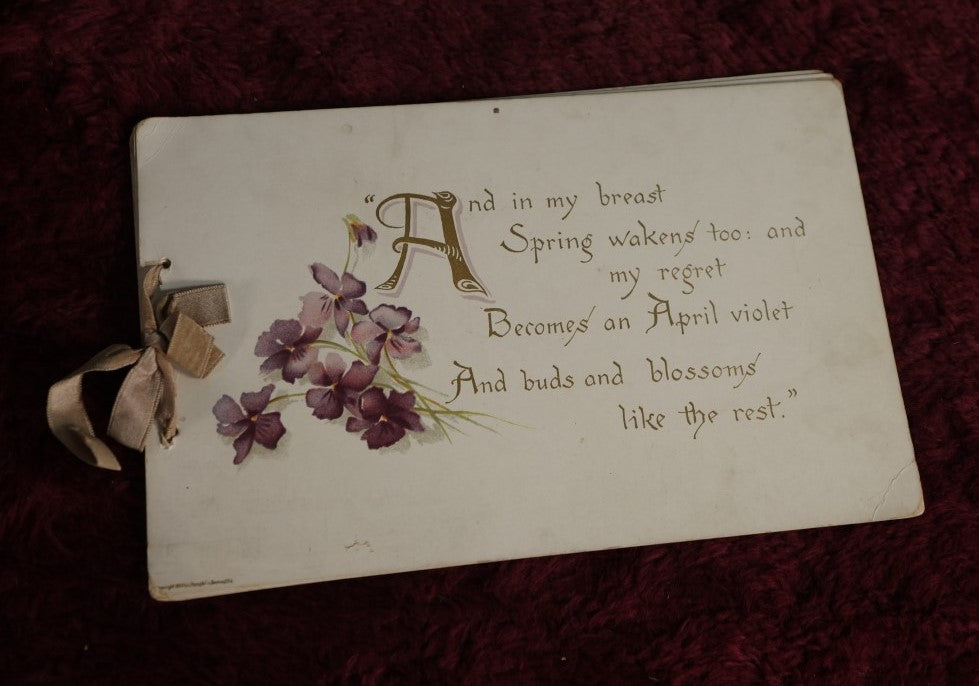 “And in my breast
Spring wakens too: and
my regret
Becomes an April violet
And buds and blossoms
like the rest.”